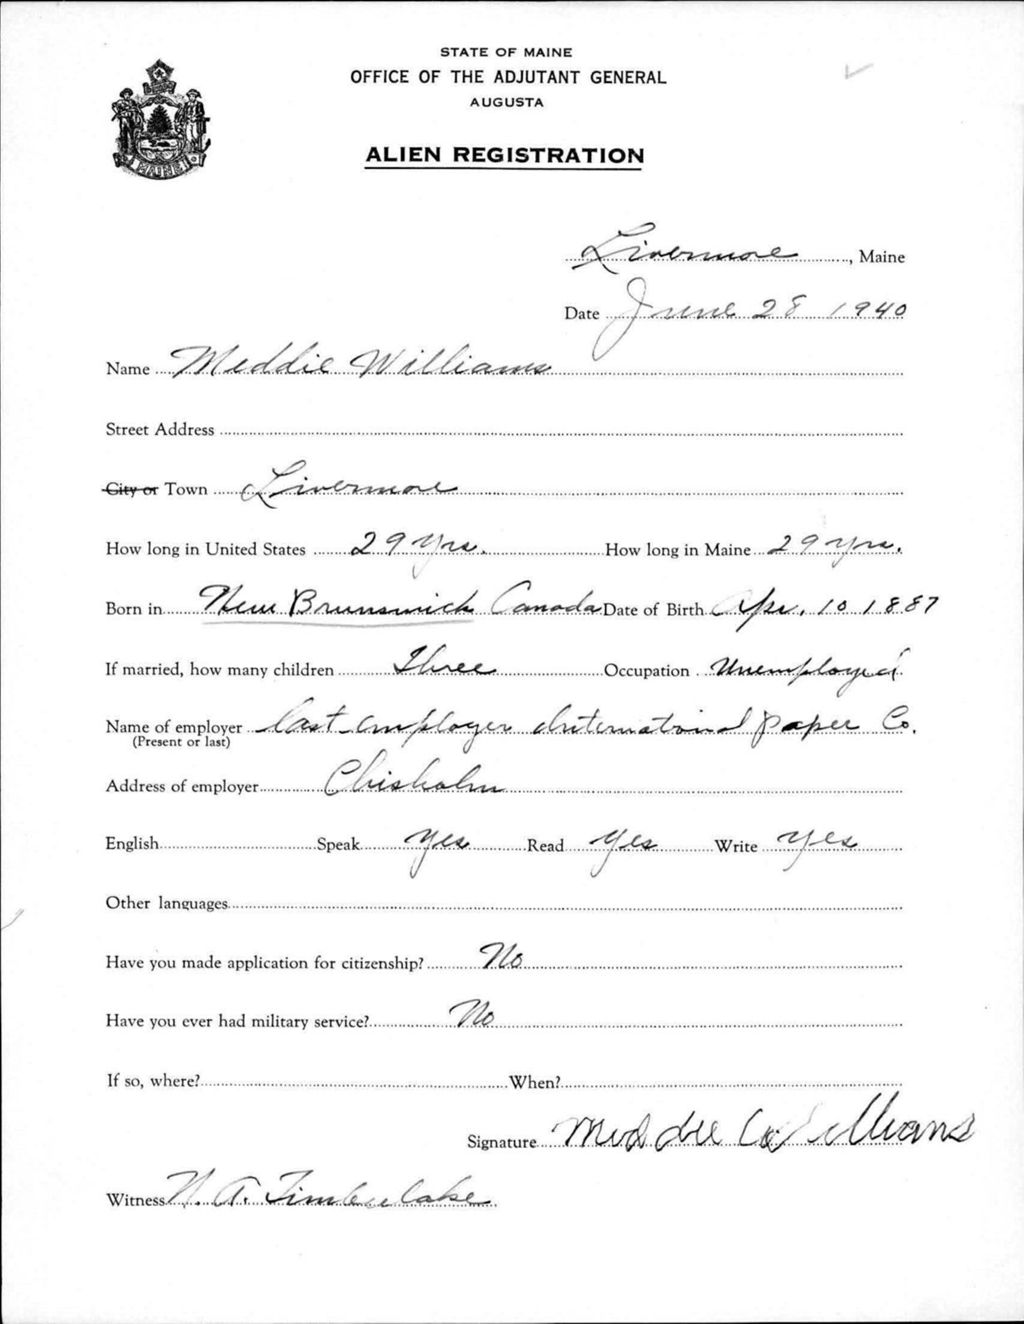 STATE OF MAINE
OFFICE OF THE ADJUTANT GENERAL
AUGUSTA
ALIEN REGISTRATION
MAINE
Livermore, Maine
Date June 28 1940
Name Meddie Williams
Street Address
City or Town Livermore
How long in United States 29 yrs. How long in Maine 29 yrs.
Born in New Brunswick Canada Date of Birth Apr. 10 1887
If married, how many children Three Occupation Unemployed
Name of employer last employer International Paper Co.
(Present or last)
Address of employer Chisholm
English Speak yes Read yes Write yes
Other languages
Have you made application for citizenship? No
Have you ever had military service? No
If so, where? When?
Signature Meddie Williams
Witness N. A. Timberlake